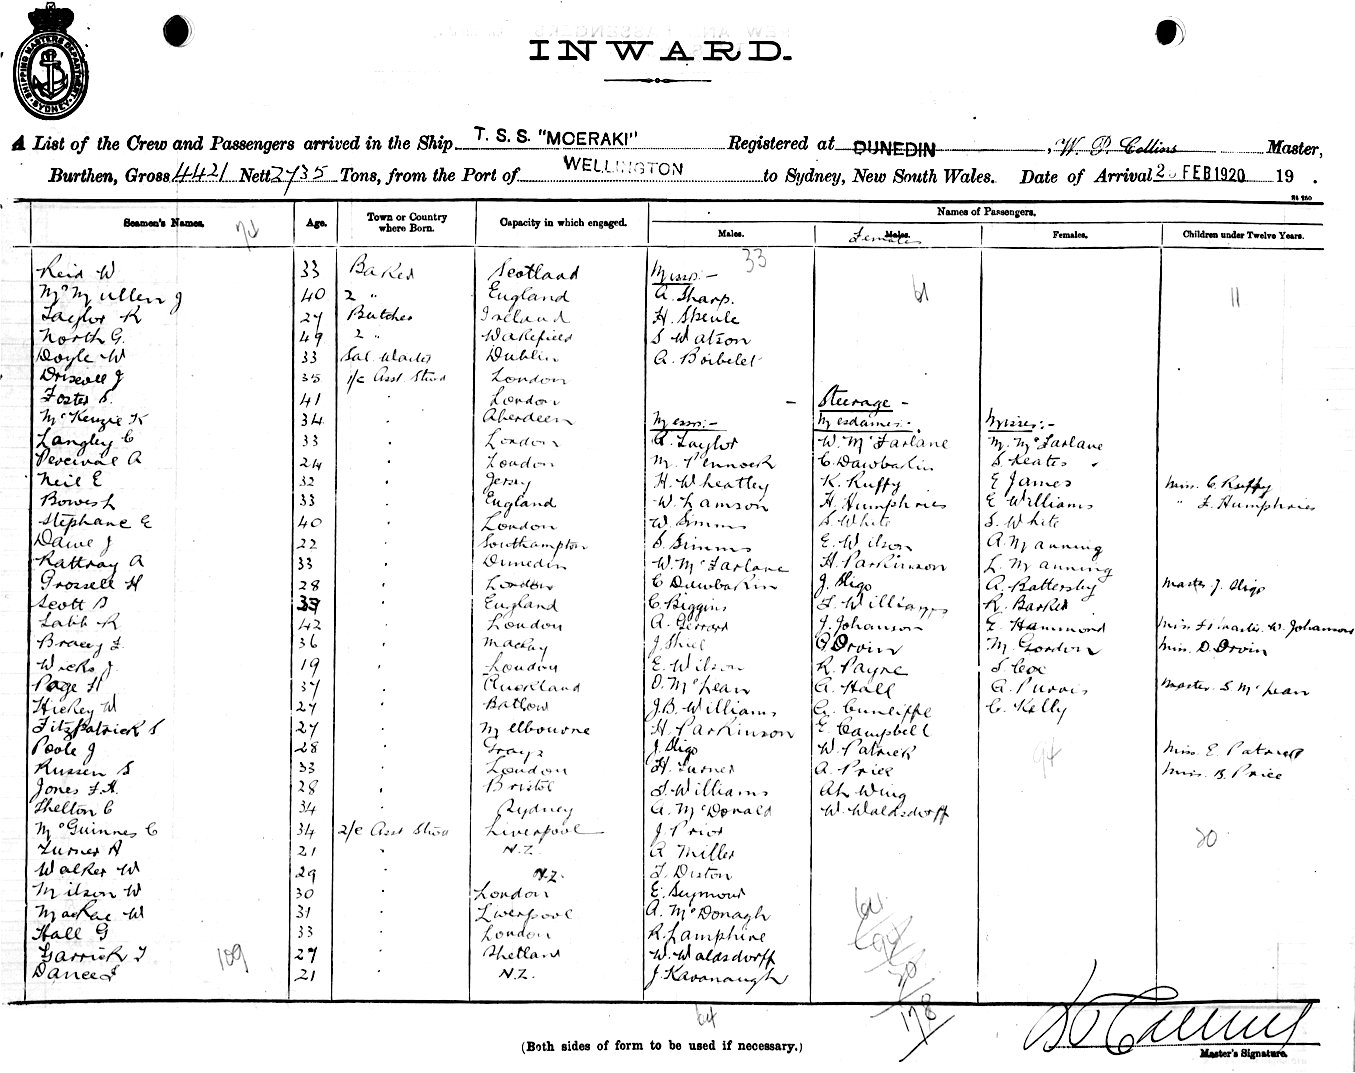 SHIPPING MASTERS DEPARTMENT SYDNEY
INWARD.
A List of the Crew and Passengers arrived in the Ship T. S. S. "MOERAKI" Registered at DUNEDIN, W. P. Collins Master,
Burthen, Gross 4421 Nett 2735 Tons, from the Port of WELLINGTON to Sydney, New South Wales. Date of Arrival 2 FEB 1920 19 .
Seamen's Names. Age. Town or Country where Born. Capacity in which engaged. Names of Passengers.
Males. Males. Females Females. Children under Twelve Years.
74 33
Reid W 33 Baker Scotland Messrs:-
McMullen J 40 2 " England A. Sharp. 61 11
Taylor R 27 Butcher Ireland H. Steule
North G. 49 2 " Wakefield S Watson
Doyle W 33 Sal. Waiter Dublin A. Boibelet
Driscoll J 35 1/c Asst Stwd London
Foster S. 41 " London - Steerage -
McKenzie K 34 " Aberdeen Messrs:- Mesdames:- Misses:-
Langley C 33 " London A. Taylor W. McFarlane M. McFarlane
Percival A 24 " London M. Pennock C. Dawbarin S. Keates
Neil E 32 " Jersey H. Wheatley K. Ruffy E James Miss. C. Ruffy
Bowes L 33 " England W. Lamson H. Humphries E Williams " L. Humphries
Stephane E 40 " London W. Simms S. White S. White
Dawe J 22 " Southampton S. Simms E. Wilson A. Manning
Rattray A 33 " Dunedin W. McFarlane H. Parkinson L. Manning
Grossell H 28 " London C Dawbarin J. Sligo A. Battersby Master J. Sligo
Scott D 39 " England C. Biggins L. Williams R. Barker
Labb R 42 " London A. Gerrard J. Johanson E. Hammond Miss F & Master W. Johanson
Bracey F 36 " Mackay J. Shiel O Orvin M. Gordon Miss. D. Orvin
Wicks J. 19 " London E. Wilson R. Payne S. Cox
Page H 37 " Auckland D. McLean A. Hall A. Purvis Master. S McLean
Hickey W 27 " Batlow J.B. Williams A. Cunliffe C. Kelly
Fitzpatrick S 27 " Melbourne H. Parkinson E. Campbell
Poole J 28 " Grays J. Sligo W. Patrick 94 Miss. E Patrick
Russen S 33 " London H. Turner A. Price Miss. B. Price
Jones F.H. 28 " Bristol S. Williams Ah Wing
Shelton C 34 " Sydney A. McDonald W. Waldsdorff
McGuinnes C 34 2/c Asst Stwd Liverpool J. Prior 20
Turner A 21 " N.Z. A Miller
Walker W 29 N.Z. F. Diston
Milson W 30 " London E. Seymour
MacRae W 31 " Liverpool A. McDonagh 61
Hall G 33 " London R. Lamphire 94
Garrick T 27 " Shetland W. Waldsdorff
109
Dance J 21 " N.Z. J. Kavanaugh 20
64 178
(Both sides of form to be used if necessary.)
Master's Signature.